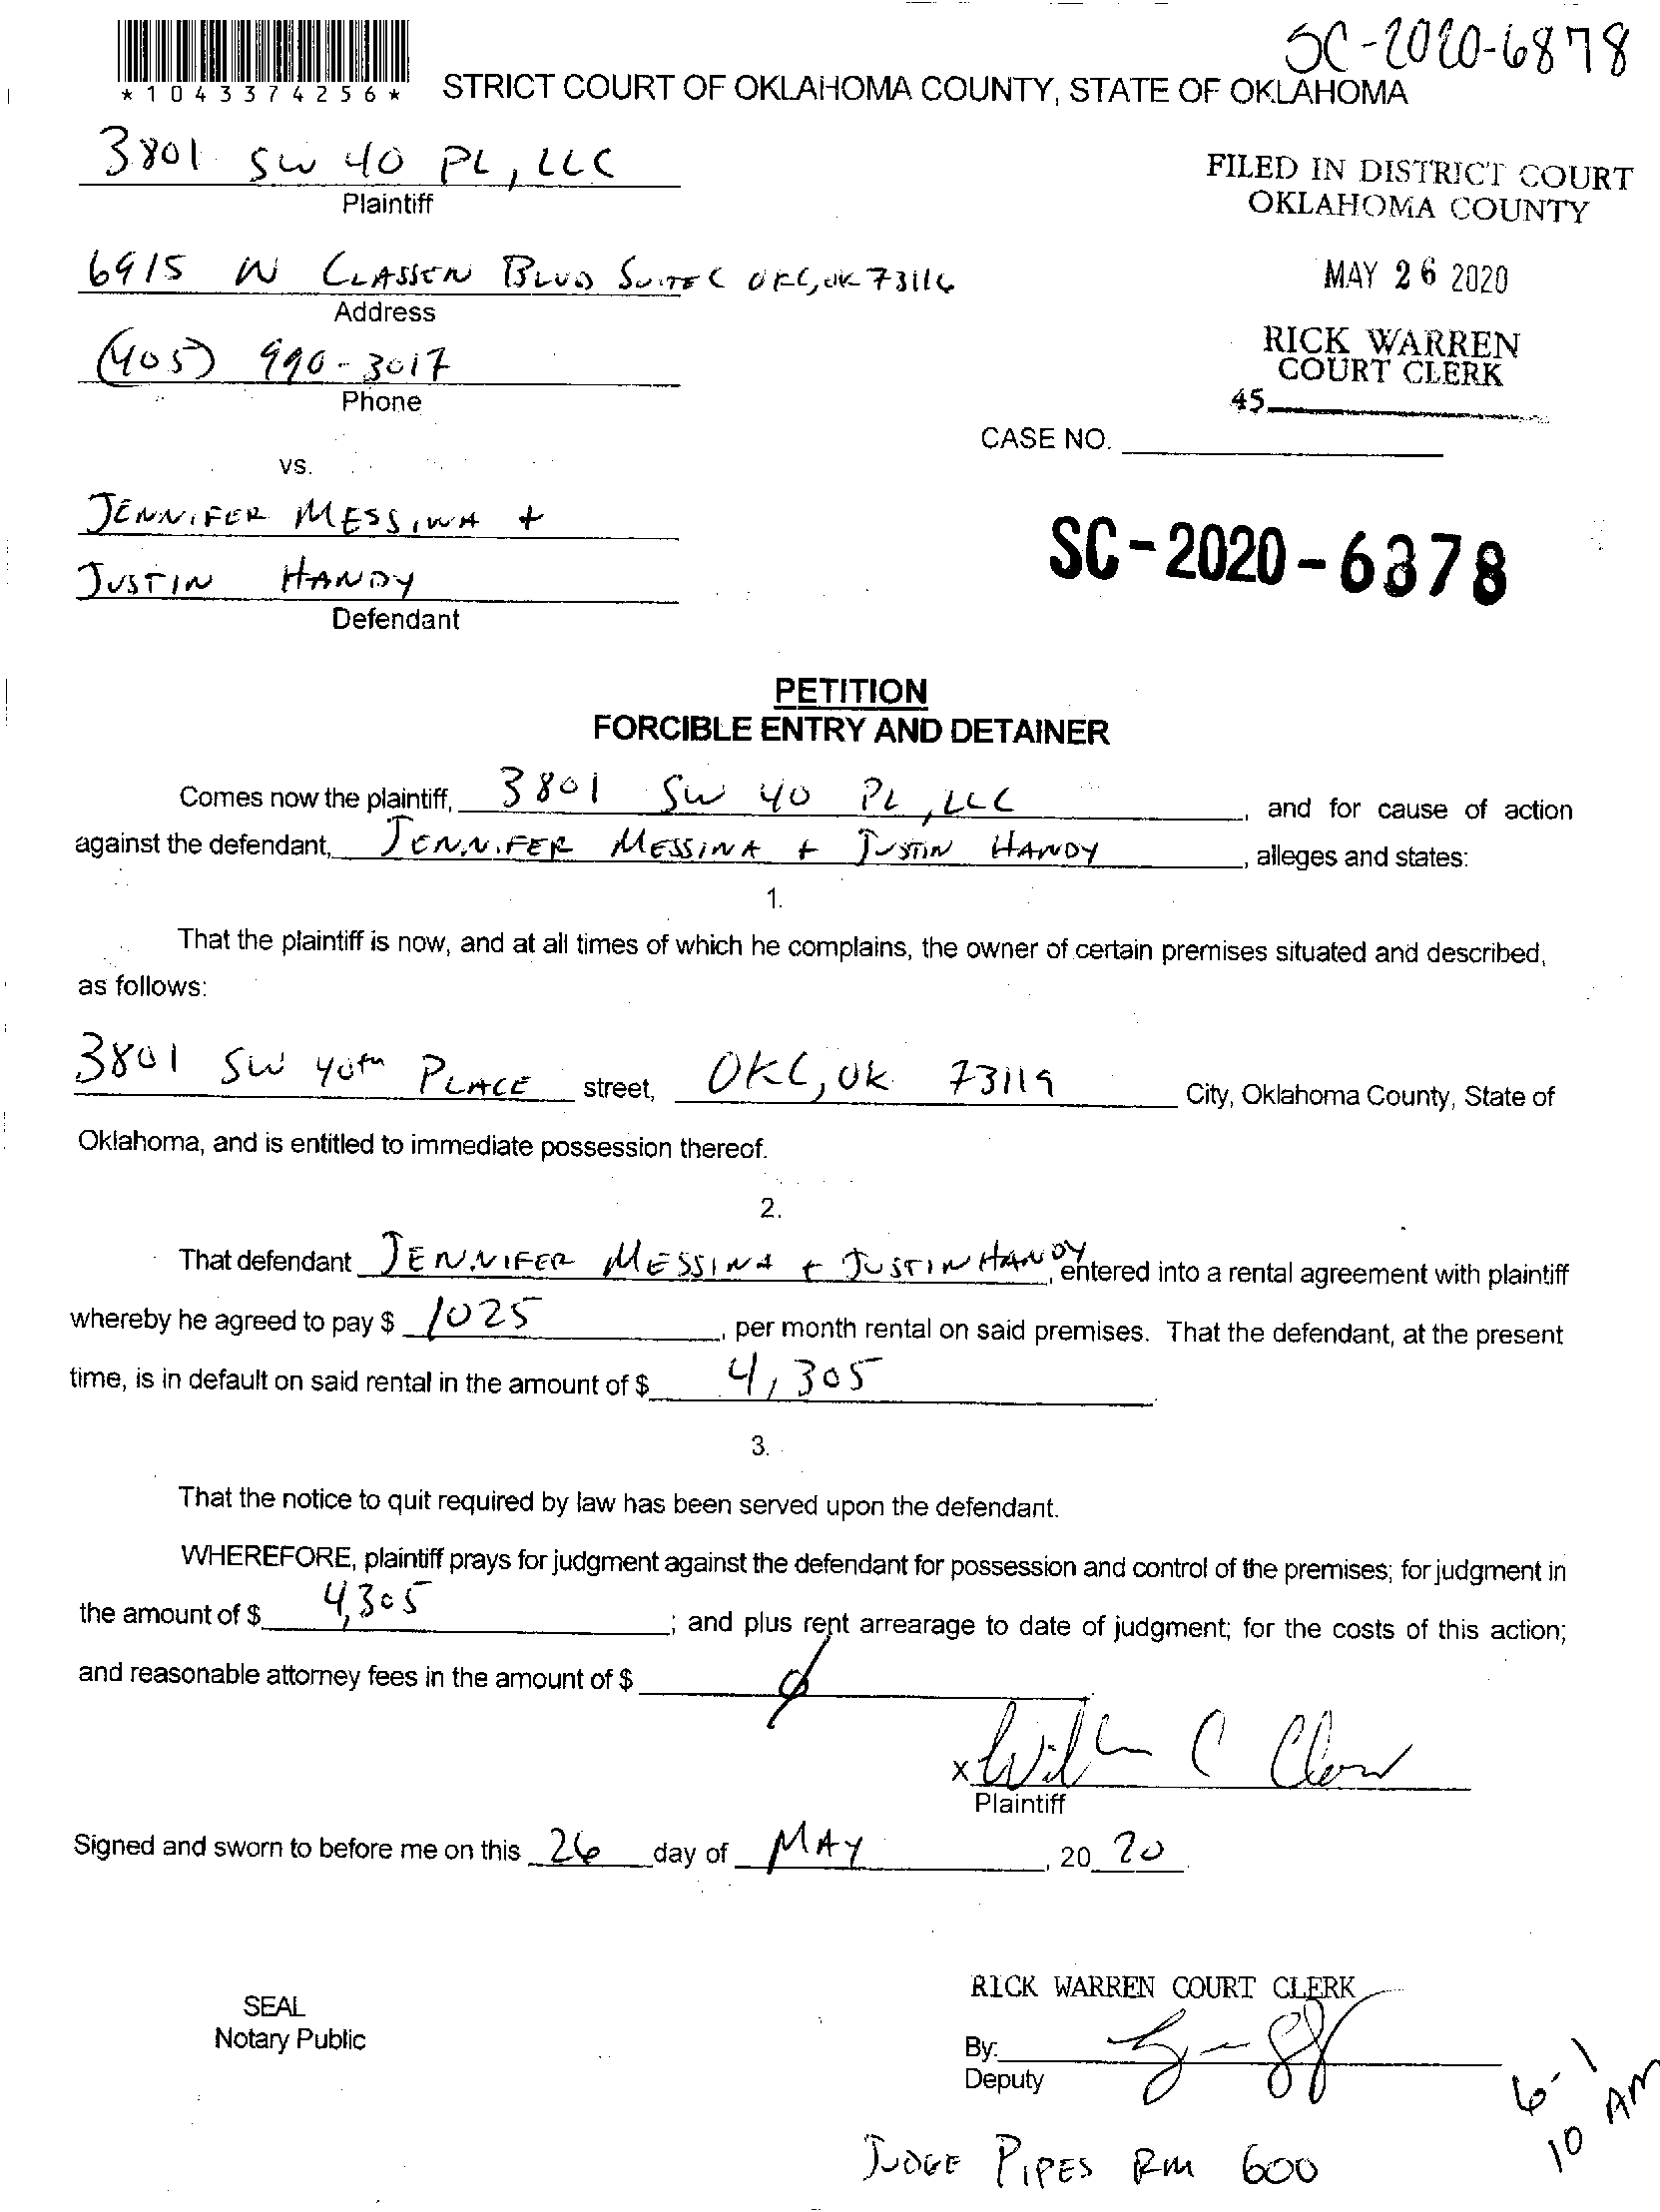 SC-2020-6878
*1043374256*
STRICT COURT OF OKLAHOMA COUNTY, STATE OF OKLAHOMA
3801 SW 40 PL, LLC
Plaintiff
FILED IN DISTRICT COURT
OKLAHOMA COUNTY
6915 N CLASSEN BLVD SUITE C OKC, OK 73116
Address
MAY 26 2020
(405) 990-3017
Phone
RICK WARREN
COURT CLERK
45
CASE NO.
vs.
JENNIFER MESSINA +
JUSTIN HANDY
Defendant
SC-2020-6878
PETITION
FORCIBLE ENTRY AND DETAINER
Comes now the plaintiff, 3801 SW 40 PL, LLC, and for cause of action
against the defendant, JENNIFER MESSINA + JUSTIN HANDY, alleges and states:
1.
That the plaintiff is now, and at all times of which he complains, the owner of certain premises situated and described,
as follows:
3801 SW 40th PLACE street, OKC, OK 73119 City, Oklahoma County, State of
Oklahoma, and is entitled to immediate possession thereof.
2.
That defendant JENNIFER MESSINA + JUSTIN HANDY, entered into a rental agreement with plaintiff
whereby he agreed to pay $ 1025, per month rental on said premises. That the defendant, at the present
time, is in default on said rental in the amount of $ 4,305.
3.
That the notice to quit required by law has been served upon the defendant.
WHEREFORE, plaintiff prays for judgment against the defendant for possession and control of the premises; for judgment in
the amount of $ 4,305; and plus rent arrearage to date of judgment; for the costs of this action;
and reasonable attorney fees in the amount of $ ∅
x
Plaintiff
Signed and sworn to before me on this 26 day of MAY, 20 20.
RICK WARREN COURT CLERK
SEAL
Notary Public
By:
Deputy
6-1
10 AM
JUDGE PIPES RM 600